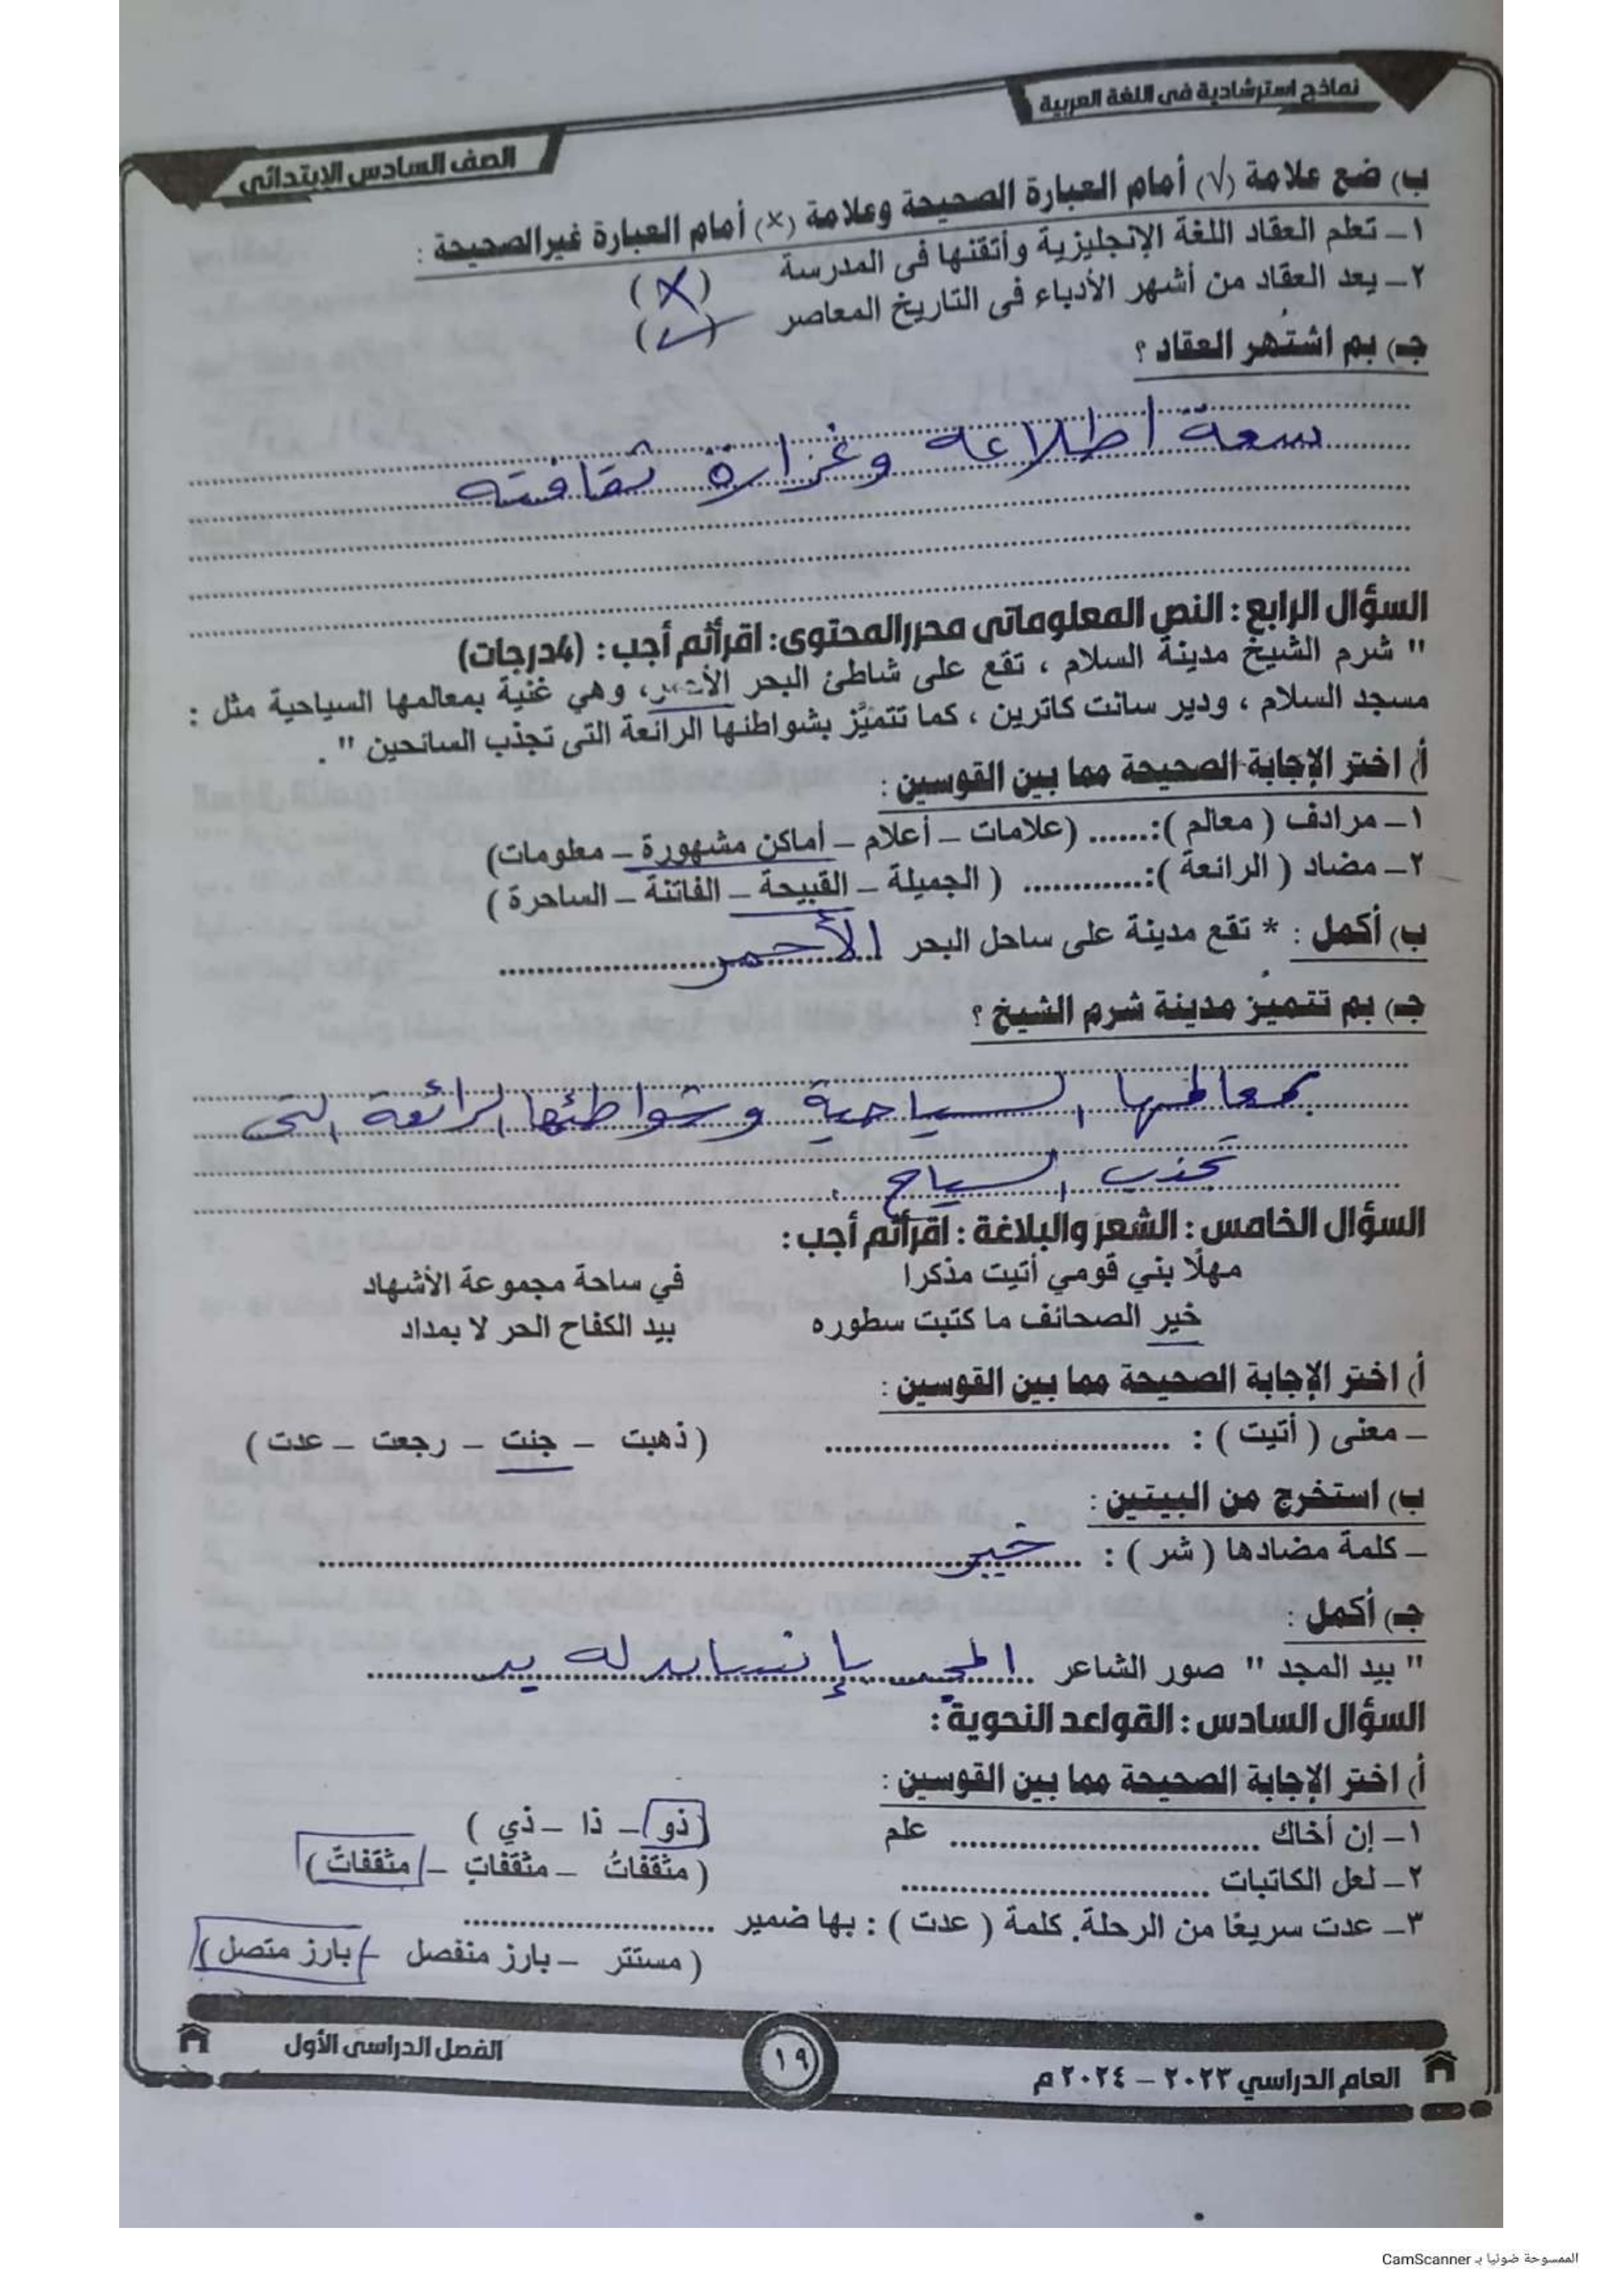 نماذج استرشادية فى اللغة العربية
الصف السادس الإبتدائى
ب) ضع علامة (√) أمام العبارة الصحيحة وعلامة (×) أمام العبارة غير الصحيحة :
١ـ تعلم العقاد اللغة الإنجليزية وأتقنها فى المدرسة (X)
٢ـ يعد العقاد من أشهر الأدباء فى التاريخ المعاصر (✓)
جـ) بم اشتهر العقاد ؟
بسعة اطلاعه وغزارة ثقافته
السؤال الرابع : النص المعلوماتى محرر المحتوى: اقرأ ثم أجب : (4درجات)
" شرم الشيخ مدينة السلام ، تقع على شاطئ البحر الأحمر، وهي غنية بمعالمها السياحية مثل :
مسجد السلام ، ودير سانت كاترين ، كما تتميَّز بشواطئها الرائعة التى تجذب السائحين " .
أ) اختر الإجابة الصحيحة مما بين القوسين :
١ـ مرادف ( معالم ):...... (علامات ـ أعلام ـ أماكن مشهورة ـ معلومات)
٢ـ مضاد ( الرائعة ):............ ( الجميلة ـ القبيحة ـ الفاتنة ـ الساحرة )
ب) أكمل : * تقع مدينة على ساحل البحر الأحمر
جـ) بم تتميز مدينة شرم الشيخ ؟
بمعالمها السياحية وشواطئها الرائعة التى
تجذب السياح .
السؤال الخامس : الشعر والبلاغة : اقرأ ثم أجب :
مهلًا بني قومي أتيت مذكرا في ساحة مجموعة الأشهاد
خير الصحائف ما كتبت سطوره بيد الكفاح الحر لا بمداد
أ) اختر الإجابة الصحيحة مما بين القوسين :
ـ معنى ( أتيت ) : .................... ( ذهبت ـ جئت ـ رجعت ـ عدت )
ب) استخرج من البيتين :
ـ كلمة مضادها ( شر ) : خير
جـ) أكمل :
" بيد المجد " صور الشاعر المجد بإنسان له يد
السؤال السادس : القواعد النحوية :
أ) اختر الإجابة الصحيحة مما بين القوسين :
١ـ إن أخاك .................... علم (ذو ـ ذا ـ ذي )
٢ـ لعل الكاتبات .................... ( مثقفاتُ ـ مثقفاتِ ـ مثقفاتٌ )
٣ـ عدت سريعًا من الرحلة. كلمة ( عدت ) : بها ضمير ....................
( مستتر ـ بارز منفصل ـ بارز متصل )
العام الدراسي ٢٠٢٣ – ٢٠٢٤ م
١٩
الفصل الدراسى الأول
الممسوحة ضوئيا بـ CamScanner